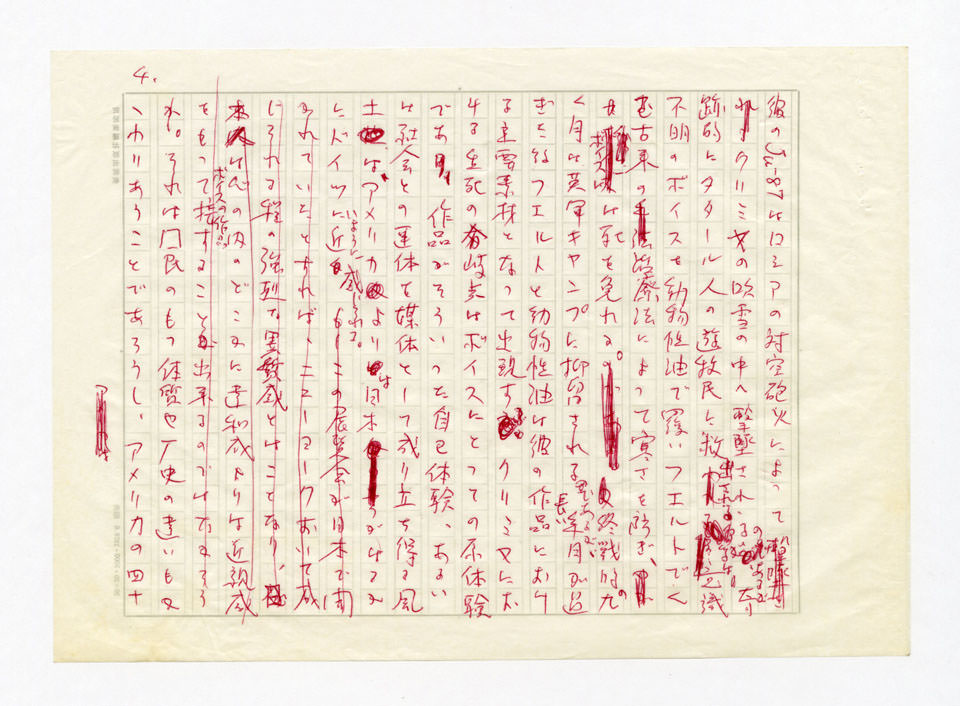 4.
彼のJu-87はロシアの対空砲火によって
クリミヤの吹雪の中へ撃墜され、
跡的にタタール人の遊牧民に救出される 意識
不明のボイスを動物性油で覆いフエルトでく
蒙古来の治療法によって寒さを防ぎ、
ボイスは死を免れる。終戦時の九
ヶ月は英軍キャンプに抑留されるのであるが、長い年月が過
ぎても尚フエルトと動物性油は彼の作品におけ
る主要素材となって出現する クリミヤにお
ける生死の分岐点はボイスにとっての原体験
である。作品がそういった自己体験、ある
は社会との連体を媒体として成り立ち得る風
土は、アメリカよりは日本
にドイツに近いように感じられる。もしこの展覧会が日本で開
かれていたとすれば、ニューヨークにおいて感
じられる程の強烈な異質感とはことなり、
本人は心の内のどこかに違和感よりは近親感
をもってボイスの作品に接することが出来るのではなかろう
か。それは国民のもつ体質や歴史の違いもか
かわりあうことであろうし、アメリカの四十